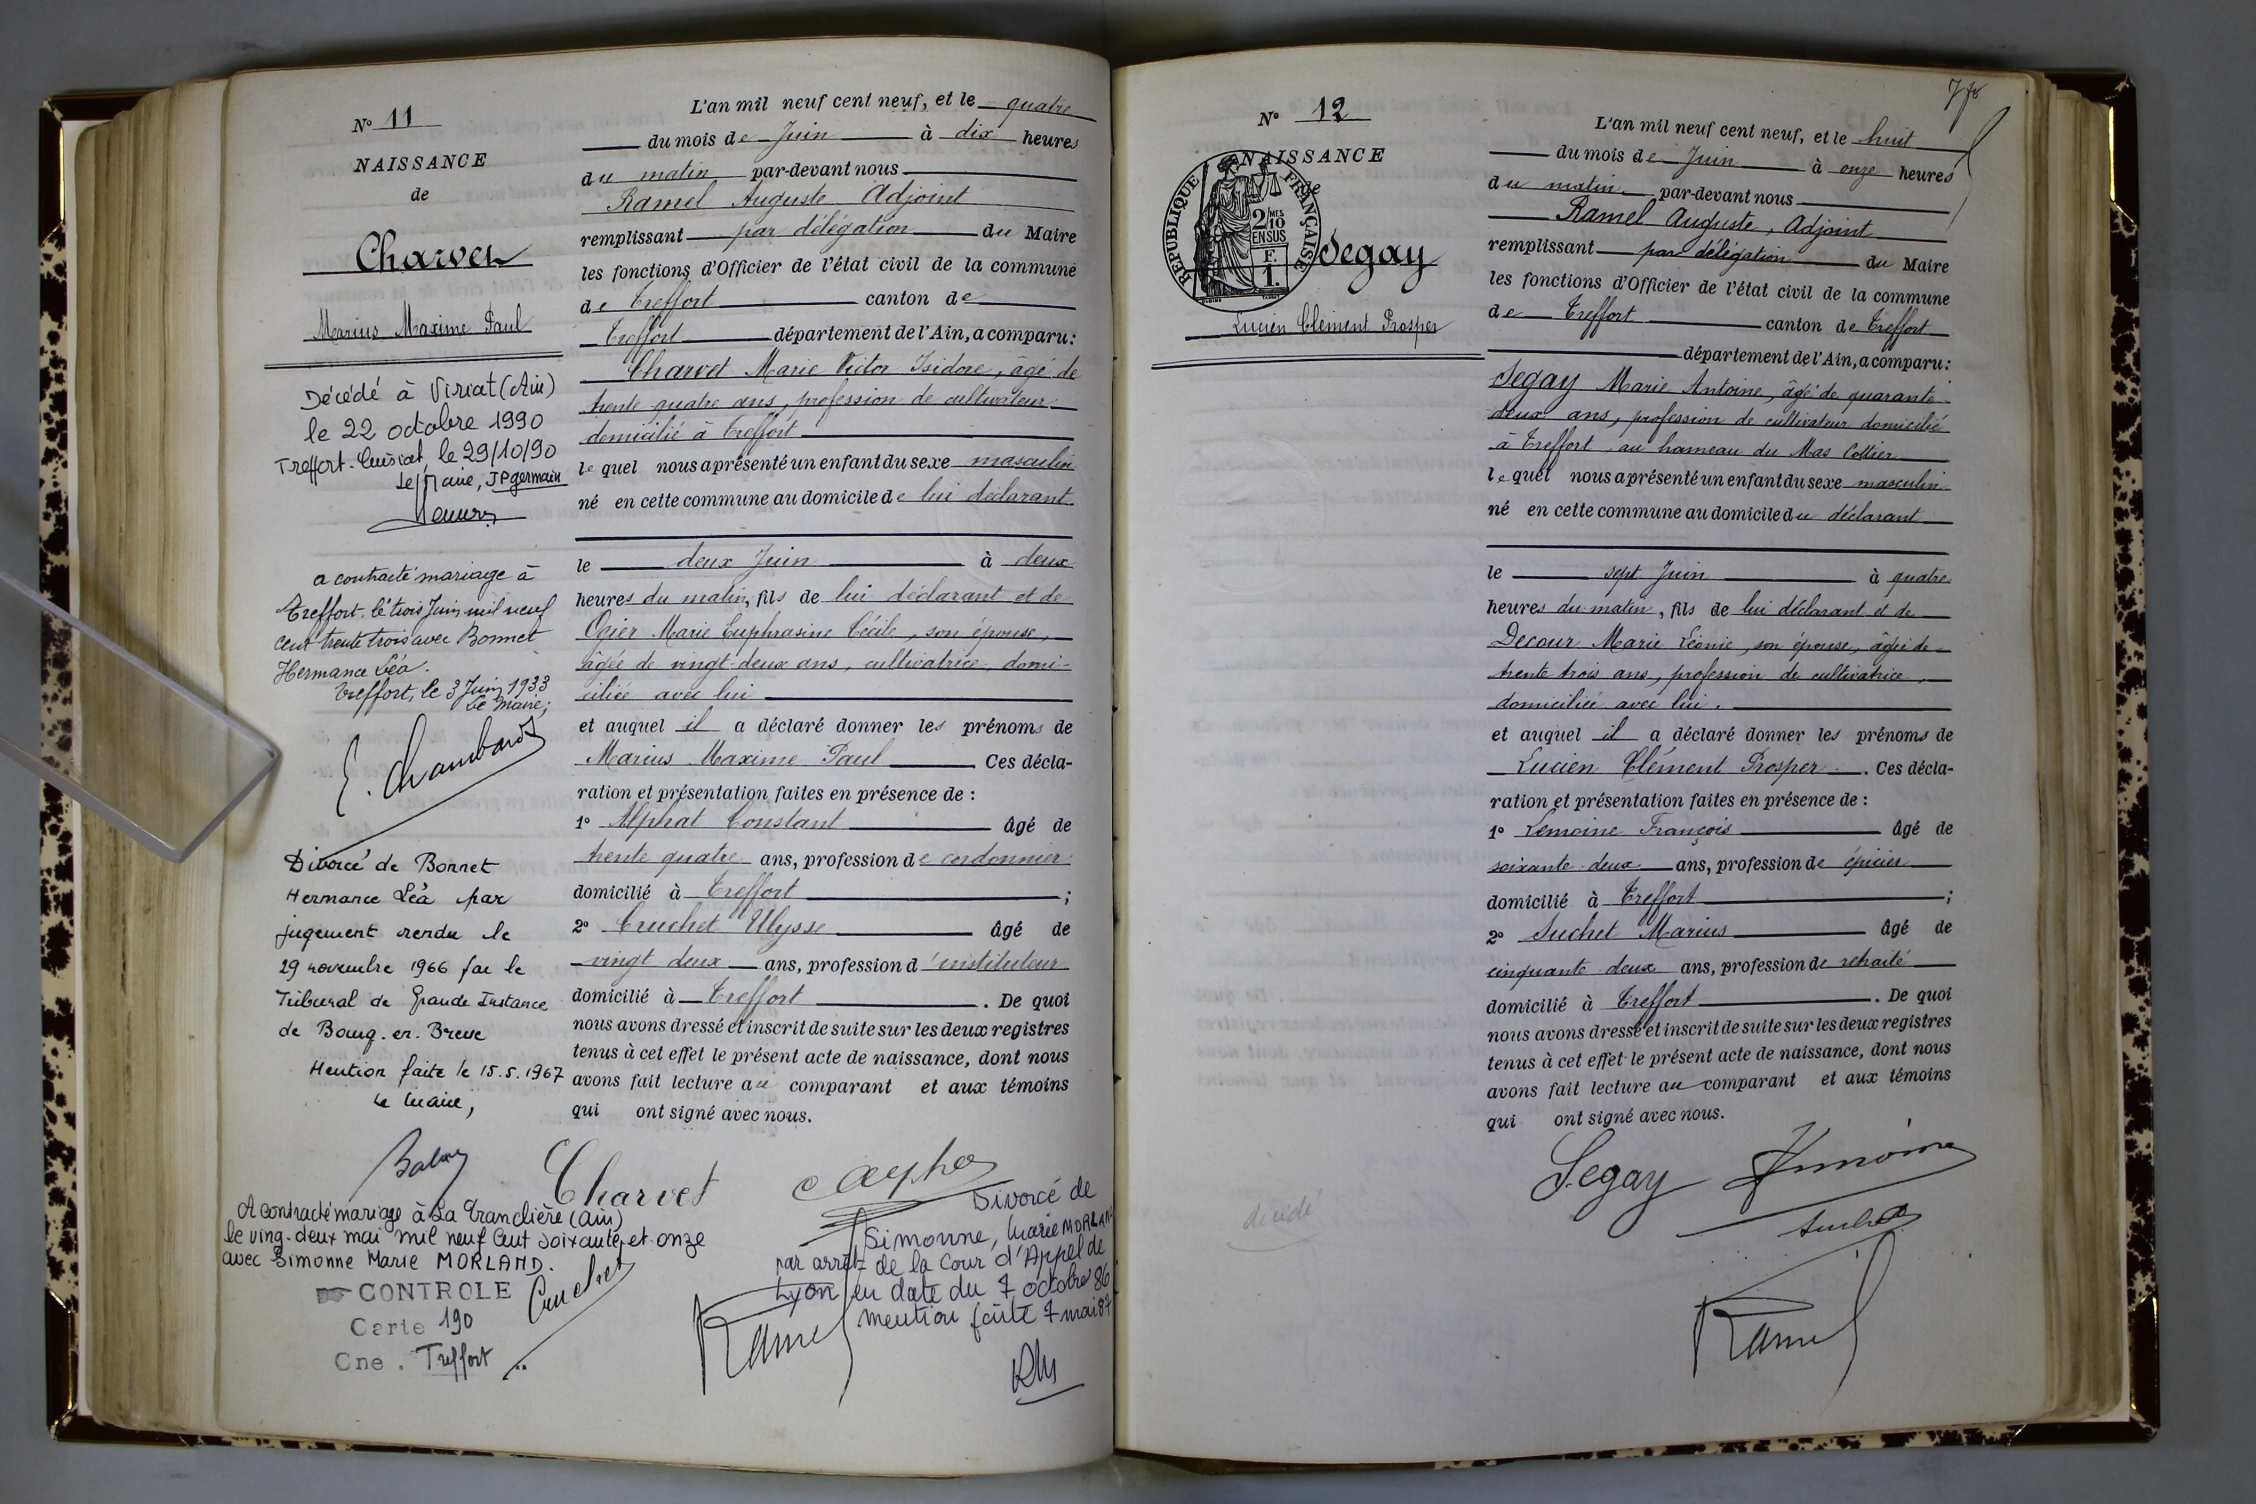 N° 11
NAISSANCE
de
Charvet
Marius Maxime Paul
Décédé à Viriat (Ain)
le 22 octobre 1990
Treffort-Cuisiat, le 29/10/90
Le Maire, JP germain
a contracté mariage à
Treffort le trois Juin mil neuf
cent trente trois avec Bonnet
Hermance Léa.
Treffort, le 3 Juin 1933
Le Maire,
E. Chambard
Divorcé de Bonnet
Hermance Léa par
jugement rendu le
29 novembre 1966 par le
Tribunal de Grande Instance
de Bourg-en-Bresse
Mention faite le 15.5.1967
Le Maire,
A contracté mariage à La Tranclière (Ain)
le ving-deux mai mil neuf cent soixante et onze
avec Simonne Marie MORLAND.
CONTROLE
Carte 190
Cne. Treffort
L'an mil neuf cent neuf, et le quatre
du mois de Juin à dix heures
du matin par-devant nous
Ramel Auguste Adjoint
remplissant par délégation du Maire
les fonctions d'Officier de l'état civil de la commune
de Treffort canton de
Treffort département de l'Ain, a comparu:
Charvet Marie Victor Isidore, âgé de
trente quatre ans, profession de cultivateur
domicilié à Treffort
lequel nous a présenté un enfant du sexe masculin
né en cette commune au domicile de lui déclarant
le deux Juin à deux
heures du matin, fils de lui déclarant et de
Ogier Marie Euphrasine Cécile, son épouse,
âgée de vingt-deux ans, cultivatrice, domi-
ciliée avec lui
et auquel il a déclaré donner les prénoms de
Marius Maxime Paul Ces décla-
ration et présentation faites en présence de :
1° Alphat Constant âgé de
trente quatre ans, profession de cordonnier
domicilié à Treffort ;
2° Cruchet Ulysse âgé de
vingt deux ans, profession d'instituteur
domicilié à Treffort . De quoi
nous avons dressé et inscrit de suite sur les deux registres
tenus à cet effet le présent acte de naissance, dont nous
avons fait lecture au comparant et aux témoins
qui ont signé avec nous.
Charvet
Cruchet
Ramel
Divorcé de
Simonne, Marie MORLAND
par arrêt de la Cour d'Appel de
Lyon en date du 7 octobre 86
mention faite 7 mai 87
N° 12
NAISSANCE
de
REPUBLIQUE FRANÇAISE
2/10 MES
EN SUS
F.
1.
Segay
Lucien Clément Prosper
décédé
L'an mil neuf cent neuf, et le huit
du mois de Juin à onze heures
du matin par-devant nous
Ramel Auguste, Adjoint
remplissant par délégation du Maire
les fonctions d'Officier de l'état civil de la commune
de Treffort canton de Treffort
département de l'Ain, a comparu:
Segay Marie Antoine, âgé de quarante-
deux ans, profession de cultivateur domicilié
à Treffort au hameau du Mas Collier
lequel nous a présenté un enfant du sexe masculin
né en cette commune au domicile du déclarant
le sept Juin à quatre
heures du matin, fils de lui déclarant et de
Decour Marie Léonie, son épouse, âgée de
trente trois ans, profession de cultivatrice,
domiciliée avec lui.
et auquel il a déclaré donner les prénoms de
Lucien Clément Prosper . Ces décla-
ration et présentation faites en présence de :
1° Lemoine François âgé de
soixante-deux ans, profession de épicier
domicilié à Treffort ;
2° Suchet Marius âgé de
cinquante deux ans, profession de retraité
domicilié à Treffort . De quoi
nous avons dressé et inscrit de suite sur les deux registres
tenus à cet effet le présent acte de naissance, dont nous
avons fait lecture au comparant et aux témoins
qui ont signé avec nous.
Segay Lemoine
Suchet
Ramel